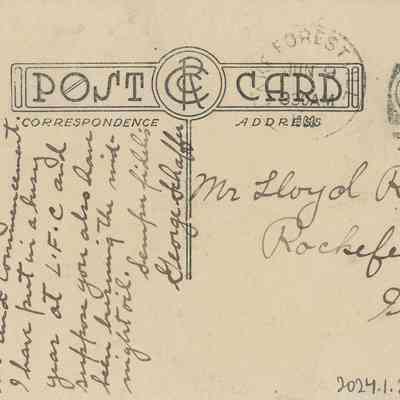 POST CARD
CORRESPONDENCE
ADDRESS
FOREST
JUN
830AM
and Commencement.
I have put in a busy
year at L.F.C and
suppose you also have
been burning the mid-
night oil.
Semper fidelis
George Schaffer
Mr Lloyd R
Rockefe
2024.1.2